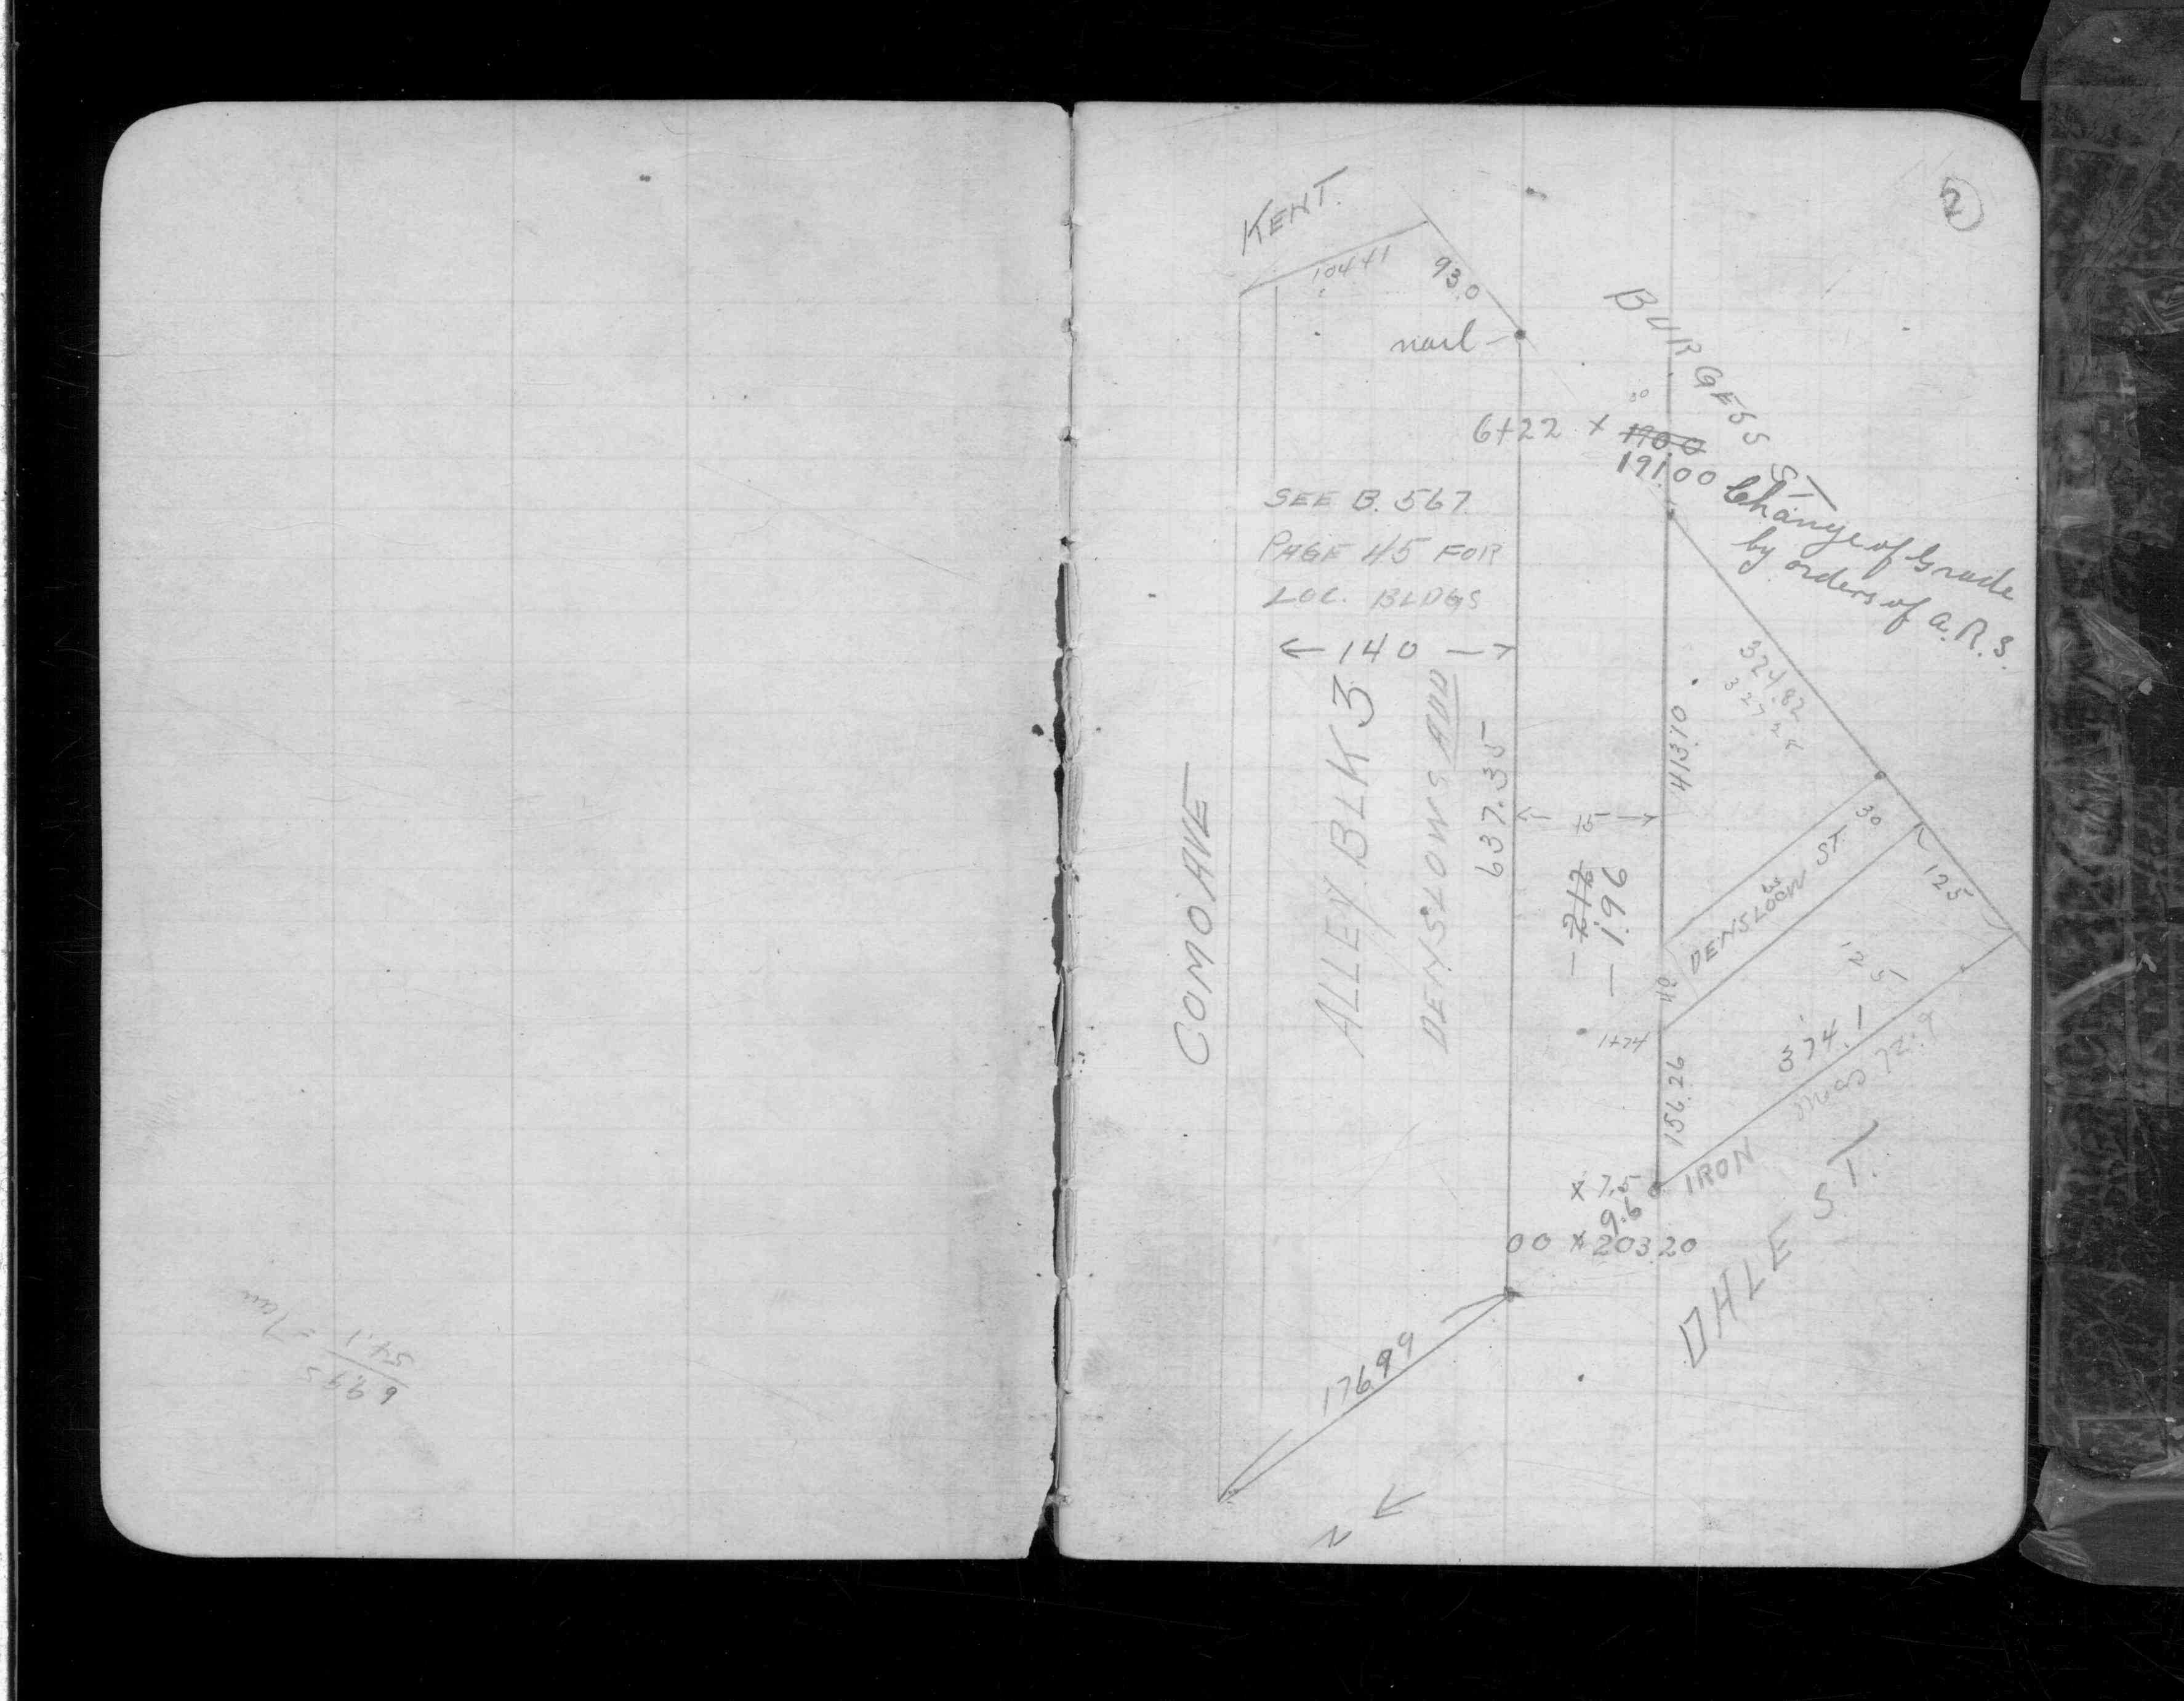 2
KENT.
104.41
93.0
nail
BURGESS ST
6+22 x 190.0
30
191.00
Change of Grade
by orders of A.R.S.
SEE B. 567
PAGE 45 FOR
LOC. BLDGS
140
ALLEY BLK 3
DENSLOWS ADD
COMO AVE
637.35
15
413.10
324.82
30
DENSLOW ST.
125
125.1
- 2.12
- 1.96
40
1+24
156.26
374.1
meas 72.9
IRON
x 7.5
9.6
00 x 203.20
DHLE ST.
176.99
N
54.1